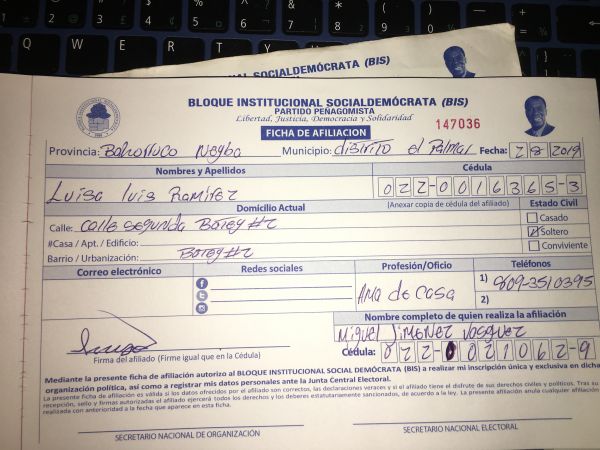 SOCIALDEMÓCRATA (BIS)
BLOQUE INSTITUCIONAL SOCIALDEMÓCRATA (BIS)
PARTIDO PEÑAGOMISTA
Libertad, Justicia, Democracia y Solidaridad
FICHA DE AFILIACION
147036
Provincia: Bahorruco Neyba Municipio: distrito el Palmar Fecha: 7-8-2019
Nombres y Apellidos Cédula
Luisa Luis Ramirez 022-0016365-3
Domicilio Actual (Anexar copia de cédula del afiliado) Estado Civil
Calle: Calle segunda Batey #2 Casado
#Casa / Apt. / Edificio: Soltero
Barrio / Urbanización: Batey #2 Conviviente
Correo electrónico Redes sociales Profesión/Oficio Teléfonos
Ama de Casa 1) 809-3510395
2)
Nombre completo de quien realiza la afiliación
Miguel Jimenez Vasquez
Firma del afiliado (Firme igual que en la Cédula) Cédula: 022-0021062-9
Mediante la presente ficha de afiliación autorizo al BLOQUE INSTITUCIONAL SOCIAL DEMÓCRATA (BIS) a realizar mi inscripción única y exclusiva en dicha
organización política, así como a registrar mis datos personales ante la Junta Central Electoral.
La presente ficha de afiliación es válida si los datos ofrecidos por el afiliado son correctos, las declaraciones veraces y si el afiliado tiene el disfrute de sus derechos civiles y políticos. Tras su
recepción, sello y firmas autorizadas el afiliado ejercerá todos los derechos y los deberes estatutariamente sancionados, de acuerdo a la ley. La presente afiliación anula cualquier afiliación
realizada con anterioridad a la fecha que aparece en esta ficha.
SECRETARIO NACIONAL DE ORGANIZACIÓN SECRETARIO NACIONAL ELECTORAL